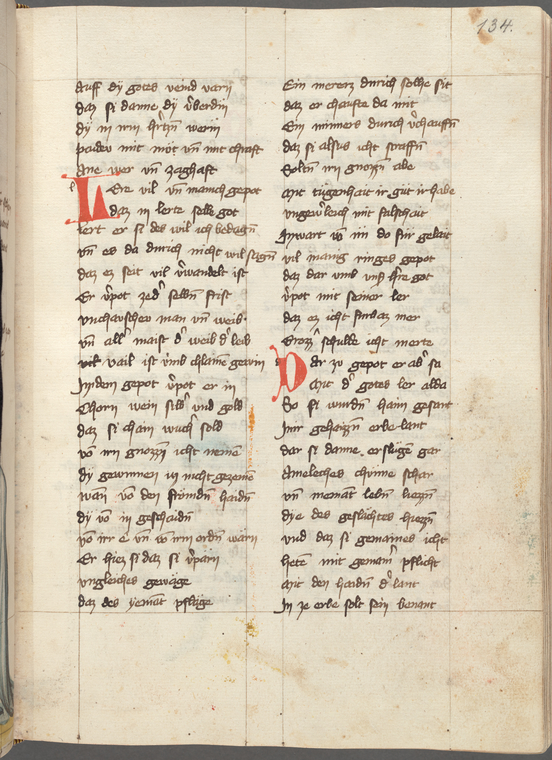 134.
Auff dy gotes veind varn
daz si danne dy v̊berdin
dy in irm hertzn̄ wern
paidew mit mǔt vn̄ mit chraft
Ane wer vn̄ zaghaft
Lere vil vn̄ manich gepot
daz in lerte selb got
lert er si des wil ich bedagn̄
vn̄ es da durich nicht wil sagn̄
daz ez seit vil v̓wandelt ist
Er v̓pot zed̓ selbn̄ frist
vnchawschen man vn̄ weib
vn̄ all̓ maist d̓ weib d̓ leib
vail ist vmb chlainē gewin
In den gepot v̓pot er in
Chorn wein silb̓ vnd gold
daz si chain wuch̓ sold
vō irn gnozzn̄ icht nemen
dy gewinnen in nicht gezemen
wan vō den frömdn̄ haidn̄
dy vō in geschaidn̄
vō irr e vn̄ vō irm ordn̄ warn
Er hiez si daz si v̓parn
vngleiches gewäge
daz des yemāt pfläge
Ein merers durich solhe sit
daz er chaufte da mit
Ein minners durich v̓chauffn̄
daz si alsus icht straffn̄
Soltn̄ irn gnozzn̄ abe
Mit tugenhait ir gut ir habe
vngew̓leich mit falschait
In wart vō im do für gelait
vil manig ringes gepot
daz dar vmb vns h̓re got
v̓pot mit seiner ler
daz ez icht fürbaz mer
Vrozz̓ schulde icht merte
Dar zu gepot er ab̓ sa
Mit d̓ gotes ler alda
So si wurdn̄ haim gesant
Inir gehaizzn̄ erbe lant
daz si danne erslügen gar
Amaleches chünne schar
vn̄ niemāt lebn̄ liezzn̄
dye des geslächtes hiezzn̄
vnd daz si gemaines icht
hetē mit gemain̓ pflicht
Mit den haidn̄ d̓ lant
In ze erbe solt sein benant